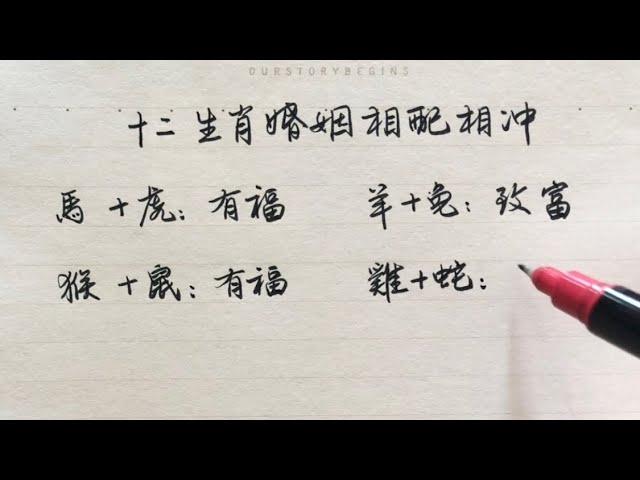 OURSTORYBEGINS
十二生肖婚姻相配相冲
馬+虎：有福 羊+兔：致富
猴+鼠：有福 雞+蛇：